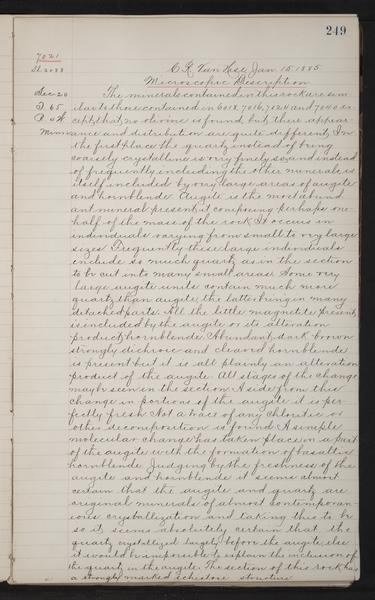 249
7021
Sl. 2088
C R Van Hise Jan 15 1885
Microscopic Description
Sec 20 The minerals contained in this rock are sim
T. 65 ilar to those contained in 6018, 7016, 7024 and 7040 ex-
R W cept that no olivine is found but there appear-
Minn ance and distribution are quite different. In
the first place the quartz instead of being
coarsely crystalline is very finely so, and instead
of frequently including the other minerals, is
itself included by very large areas of augite
and hornblende. Augite is the most abund
ant mineral present, it composing perhaps one
half of the mass of the rock. It occurs in
individuals varying from small to very large
sizes. Frequently these large individuals
include so much quartz as in the section
to be cut into many small areas. Some very
large augite units contain much more
quartz than augite, the latter being in many
detached parts. All the little magnetite present
is included by the augite or its alteration
product, hornblende. Abundant dark brown
strongly dichroic and cleaved hornblende
is present but it is all plainly an alteration
product of the augite. All stages of the change
may be seen in the section. Aside from this
change in portions of the augite it is per-
fectly fresh. Not a trace of any chloritic or
other decomposition is found. A simple
molecular change has taken place in a part
of the augite with the formation of basaltic
hornblende. Judging by the freshness of the
augite and hornblende it seems almost
certain that the augite and quartz are
original minerals of almost contemporan-
eous crystallization and taking this to be
so it seems absolutely certain that the
quartz crystallized largely before the augite, else
it would be impossible to explain the inclusion of
the quartz in the augite. The section of this rock has
a strongly marked schistose structure